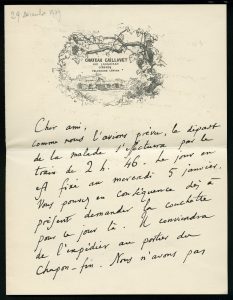 29 décembre 1909
CHATEAU CAILLAVET
PAR
GIRONDE
TÉLÉPHONE
Cher ami,
Comme nous l'avions prévu, le départ
de la malade s'effectuera par le
train de 2 h. 46. Le jour en
est fixé au mercredi 5 janvier.
Vous pouvez en conséquence dès à
présent demander la couchette
pour le jour là. Il conviendra
de l'expédier au portier du
Chapon-fin. Nous n'avons pas